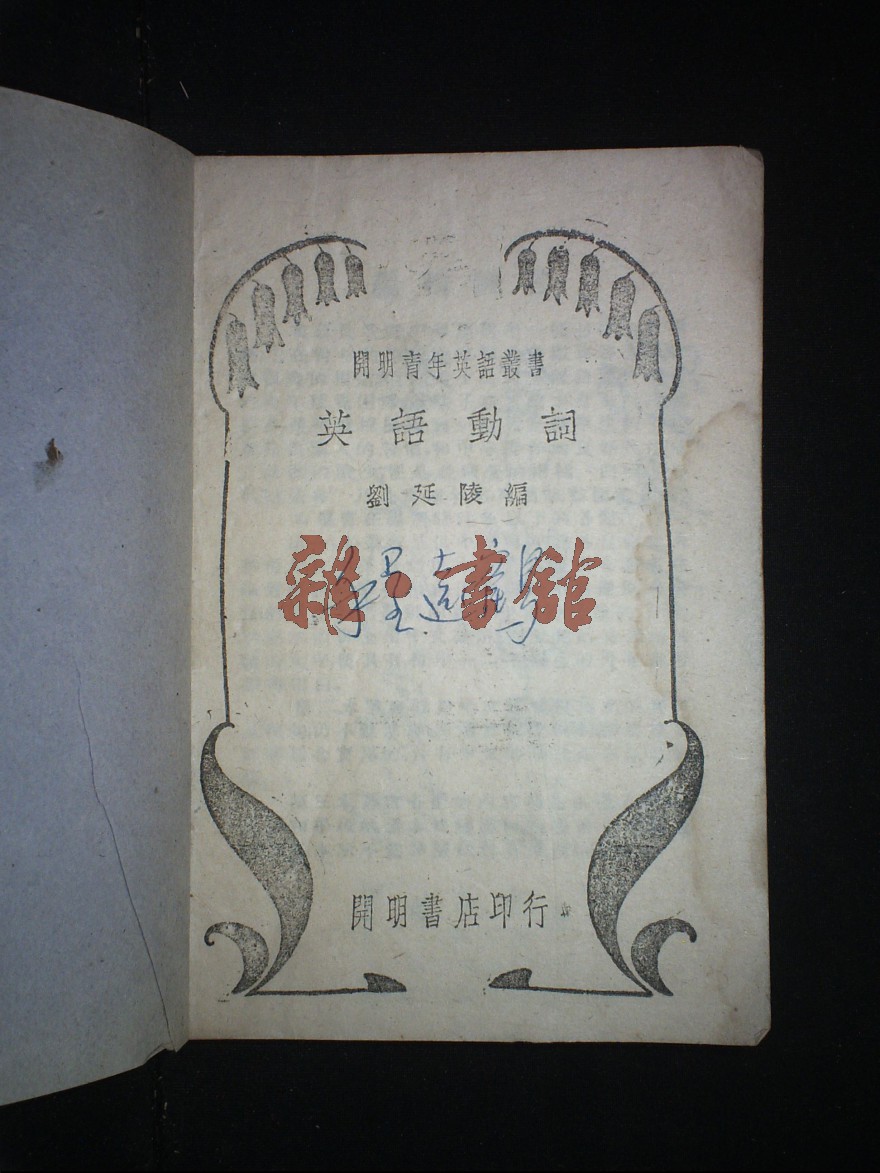 開明青年英語叢書
英語動詞
劉延陵編
雜·書館
開明書店印行